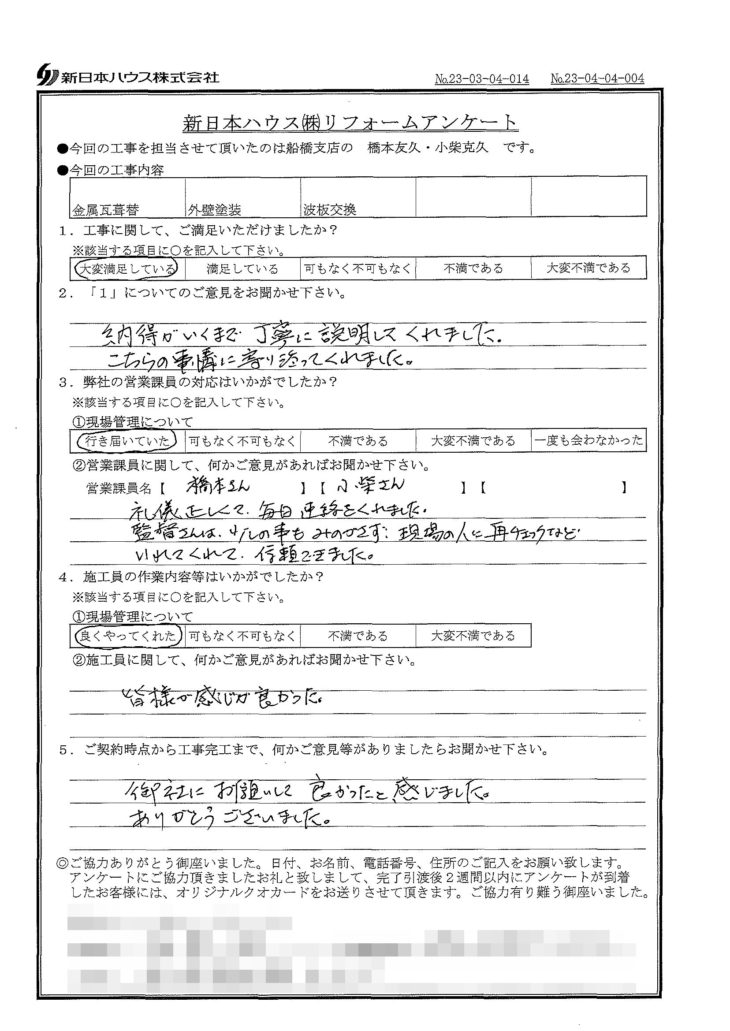 新日本ハウス株式会社
No.23-03-04-014 No.23-04-04-004
新日本ハウス㈱リフォームアンケート
●今回の工事を担当させて頂いたのは船橋支店の 橋本友久・小柴克久 です。
●今回の工事内容
金属瓦葺替 外壁塗装 波板交換
1．工事に関して、ご満足いただけましたか？
※該当する項目に○を記入して下さい。
大変満足している 満足している 可もなく不可もなく 不満である 大変不満である
2．「1」についてのご意見をお聞かせ下さい。
納得がいくまで丁寧に説明してくれました。
こちらの事情に寄り添ってくれました。
3．弊社の営業課員の対応はいかがでしたか？
※該当する項目に○を記入して下さい。
①現場管理について
行き届いていた 可もなく不可もなく 不満である 大変不満である 一度も会わなかった
②営業課員に関して、何かご意見があればお聞かせ下さい。
営業課員名【 橋本さん 】【 小柴さん 】【 】
礼儀正しくて、毎日連絡をくれました。
監督さんは、少しの事もみのがさず、現場の人に再チェックなど
いれてくれて、信頼できました。
4．施工員の作業内容等はいかがでしたか？
※該当する項目に○を記入して下さい。
①現場管理について
良くやってくれた 可もなく不可もなく 不満である 大変不満である
②施工員に関して、何かご意見があればお聞かせ下さい。
皆様が感じが良かった。
5．ご契約時点から工事完工まで、何かご意見等がありましたらお聞かせ下さい。
御社にお願いして良かったと感じました。
ありがとうございました。
◎ご協力ありがとう御座いました。日付、お名前、電話番号、住所のご記入をお願い致します。
アンケートにご協力頂きましたお礼と致しまして、完了引渡後2週間以内にアンケートが到着
したお客様には、オリジナルクオカードをお送りさせて頂きます。ご協力有り難う御座いました。